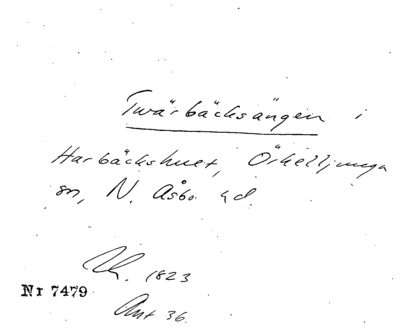 Tvärbäcksängen i
Harbäckshult, Örkelljunga
sn, N. Åsbo hd.
Lh. 1823
Nr 7479
Ant 36.